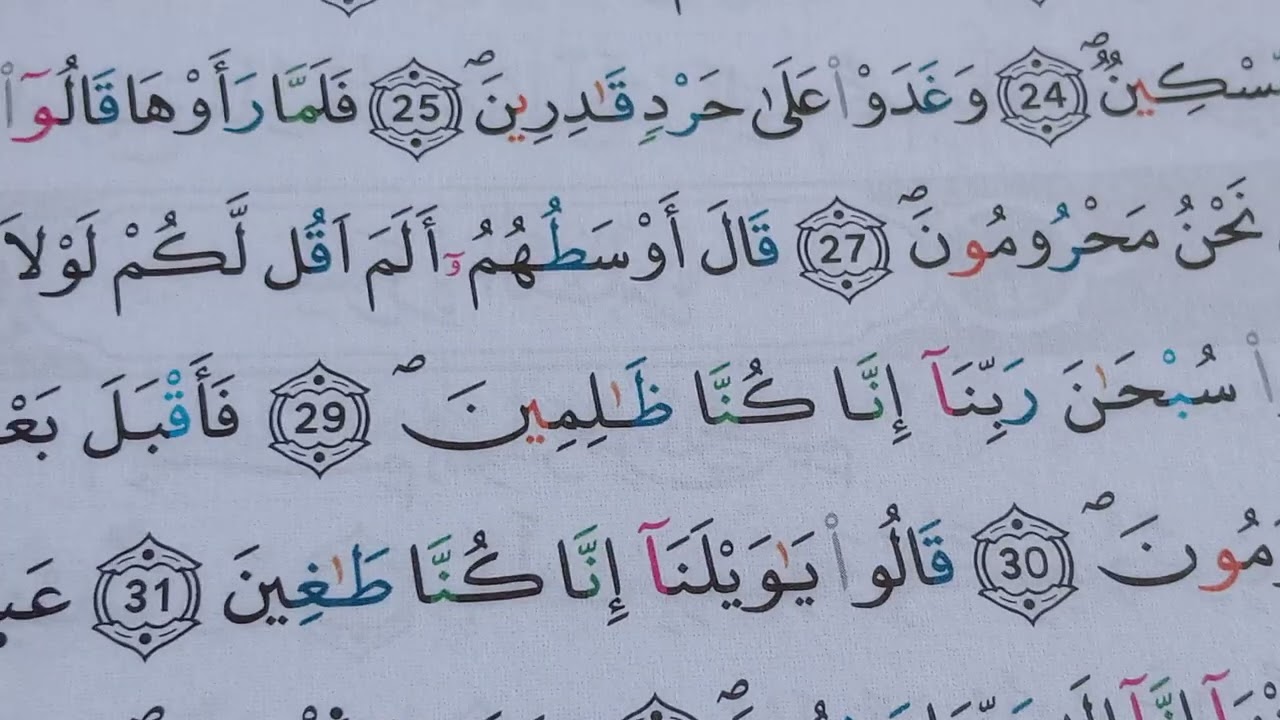 مِّسْكِينٌ ۝24 وَغَدَوْا۟ عَلَىٰ حَرْدٍ قَـٰدِرِينَ ۝25 فَلَمَّا رَأَوْهَا قَالُوٓا۟
نَحْنُ مَحْرُومُونَ ۝27 قَالَ أَوْسَطُهُمُۥٓ أَلَمَ اَقُل لَّكُمْ لَوْلَا
سُبْحَـٰنَ رَبِّنَآ إِنَّا كُنَّا ظَـٰلِمِينَ ۝29 فَأَقْبَلَ بَعْ
مُونَ ۝30 قَالُوا۟ يَـٰوَيْلَنَآ إِنَّا كُنَّا طَـٰغِينَ ۝31 عَ